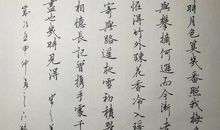 時月色算幾番照我梅
與攀摘何遜而今漸
怪得竹外疎花香冷入
寄與路遙夜雪初積
相憶長記曾攜手處千
盡也幾時見得